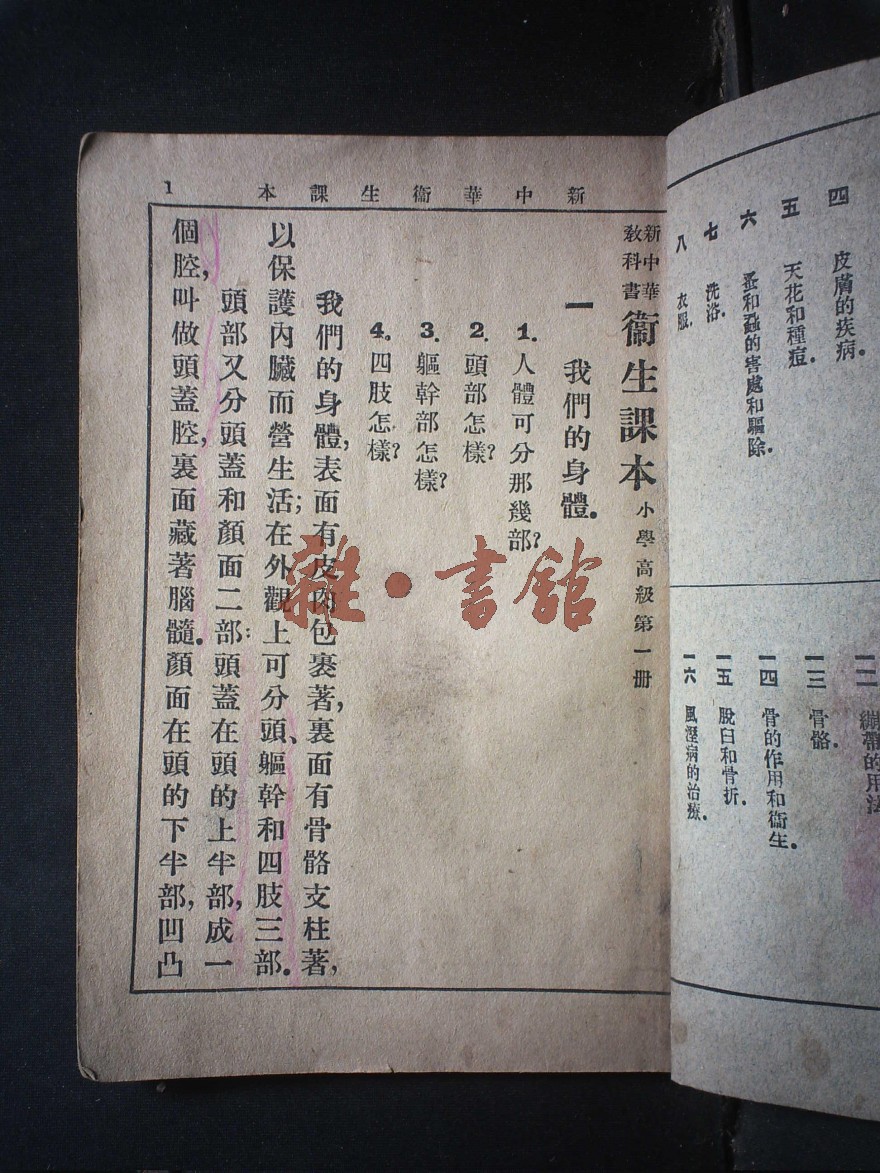 四　皮膚的疾病.
五　天花和種痘.
六　蚤和蝨的害處和驅除.
七　洗浴.
八　衣服.
一二　繃帶的用法
一三　骨骼.
一四　骨的作用和衞生.
一五　脫臼和骨折.
一六　風溼病的治療.
新中華衞生課本
1
新中華教科書 衞生課本 小學高級第一册
一　我們的身體.
1. 人體可分那幾部?
2. 頭部怎樣?
3. 軀幹部怎樣?
4. 四肢怎樣?
我們的身體,表面有皮肉包裹著,裏面有骨骼支柱著,
以保護內臟而營生活;在外觀上可分頭、軀幹和四肢三部.
頭部又分頭蓋和顏面二部:頭蓋在頭的上半部,成一
個腔,叫做頭蓋腔,裏面藏著腦髓.顏面在頭的下半部,凹凸
雜·書館